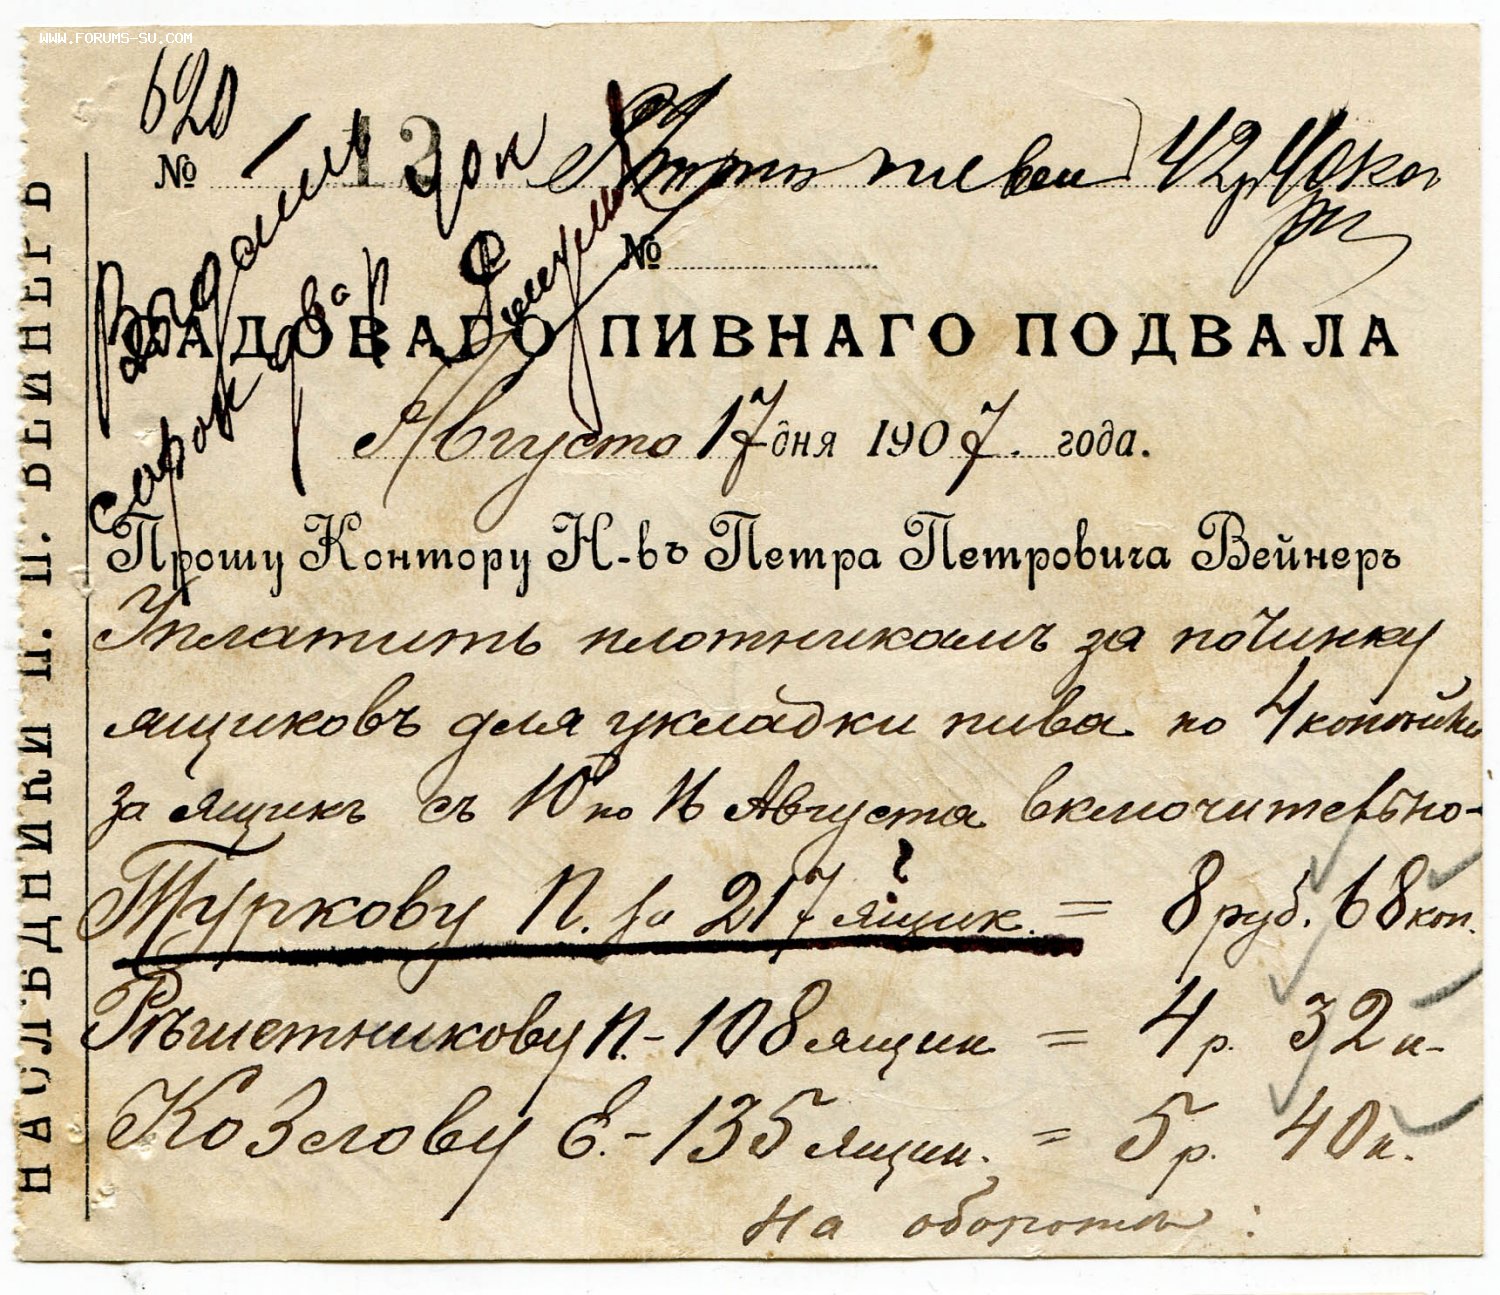 WWW.FORUMS-SU.COM
620
№ 13
42р 40коп
Выдать
сорок два р 40к
№
САДОВАГО ПИВНАГО ПОДВАЛА
Августа 17 дня 1907. года.
Прошу Контору Н-въ Петра Петровича Вейнеръ
Уплатить плотникамъ за починку
ящиковъ для укладки пива по 4 копейки
за ящикъ съ 10 по 16 Августа включительно-
Туркову П. за 217 ящик. = 8 руб. 68 коп.
Рѣшетникову П. - 108 ящик = 4 р. 32 к-
Козлову Е. - 135 ящик. = 5 р. 40 к.
на оборотѣ:
НАСЛѢДНИКИ П. П. ВЕЙНЕРЪ